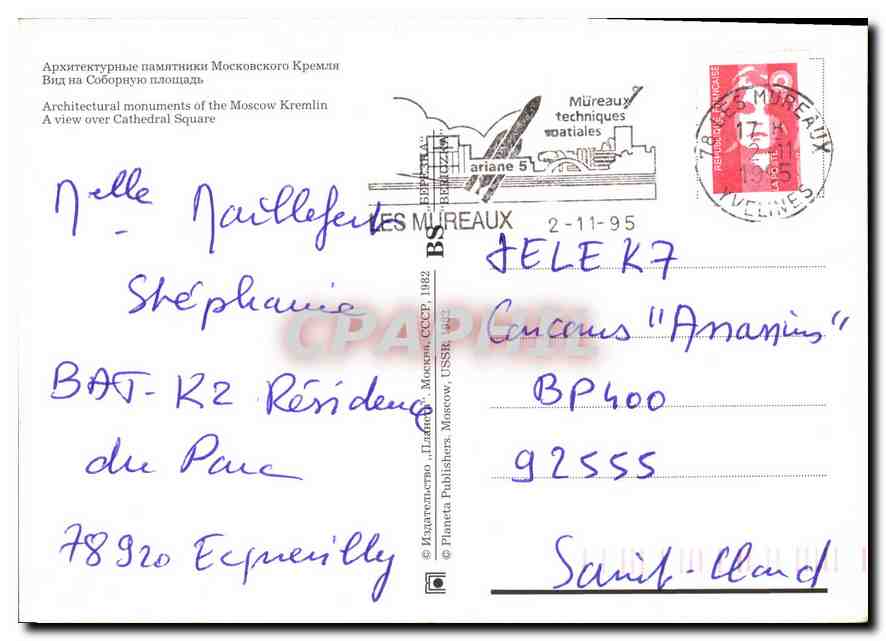 Архитектурные памятники Московского Кремля
Вид на Соборную площадь
Architectural monuments of the Moscow Kremlin
A view over Cathedral Square
Mureaux
techniques
spatiales
ariane 5
LES MUREAUX 2-11-95
REPUBLIQUE FRANÇAISE
LA POSTE
78 LES MUREAUX
17 H
2-11
1995
YVELINES
Melle Maillefert
Stéphanie
BAT-K2 Résidence
du Parc
78920 Ecquevilly
"БЕРЕЗКА"
"BERIOZKA"
BS
© Издательство „Планета“. Москва, СССР, 1982
© Planeta Publishers. Moscow, USSR, 1982
TELE K7
Concours "Assassins"
BP400
92555
Saint-Cloud
CPAPHIL